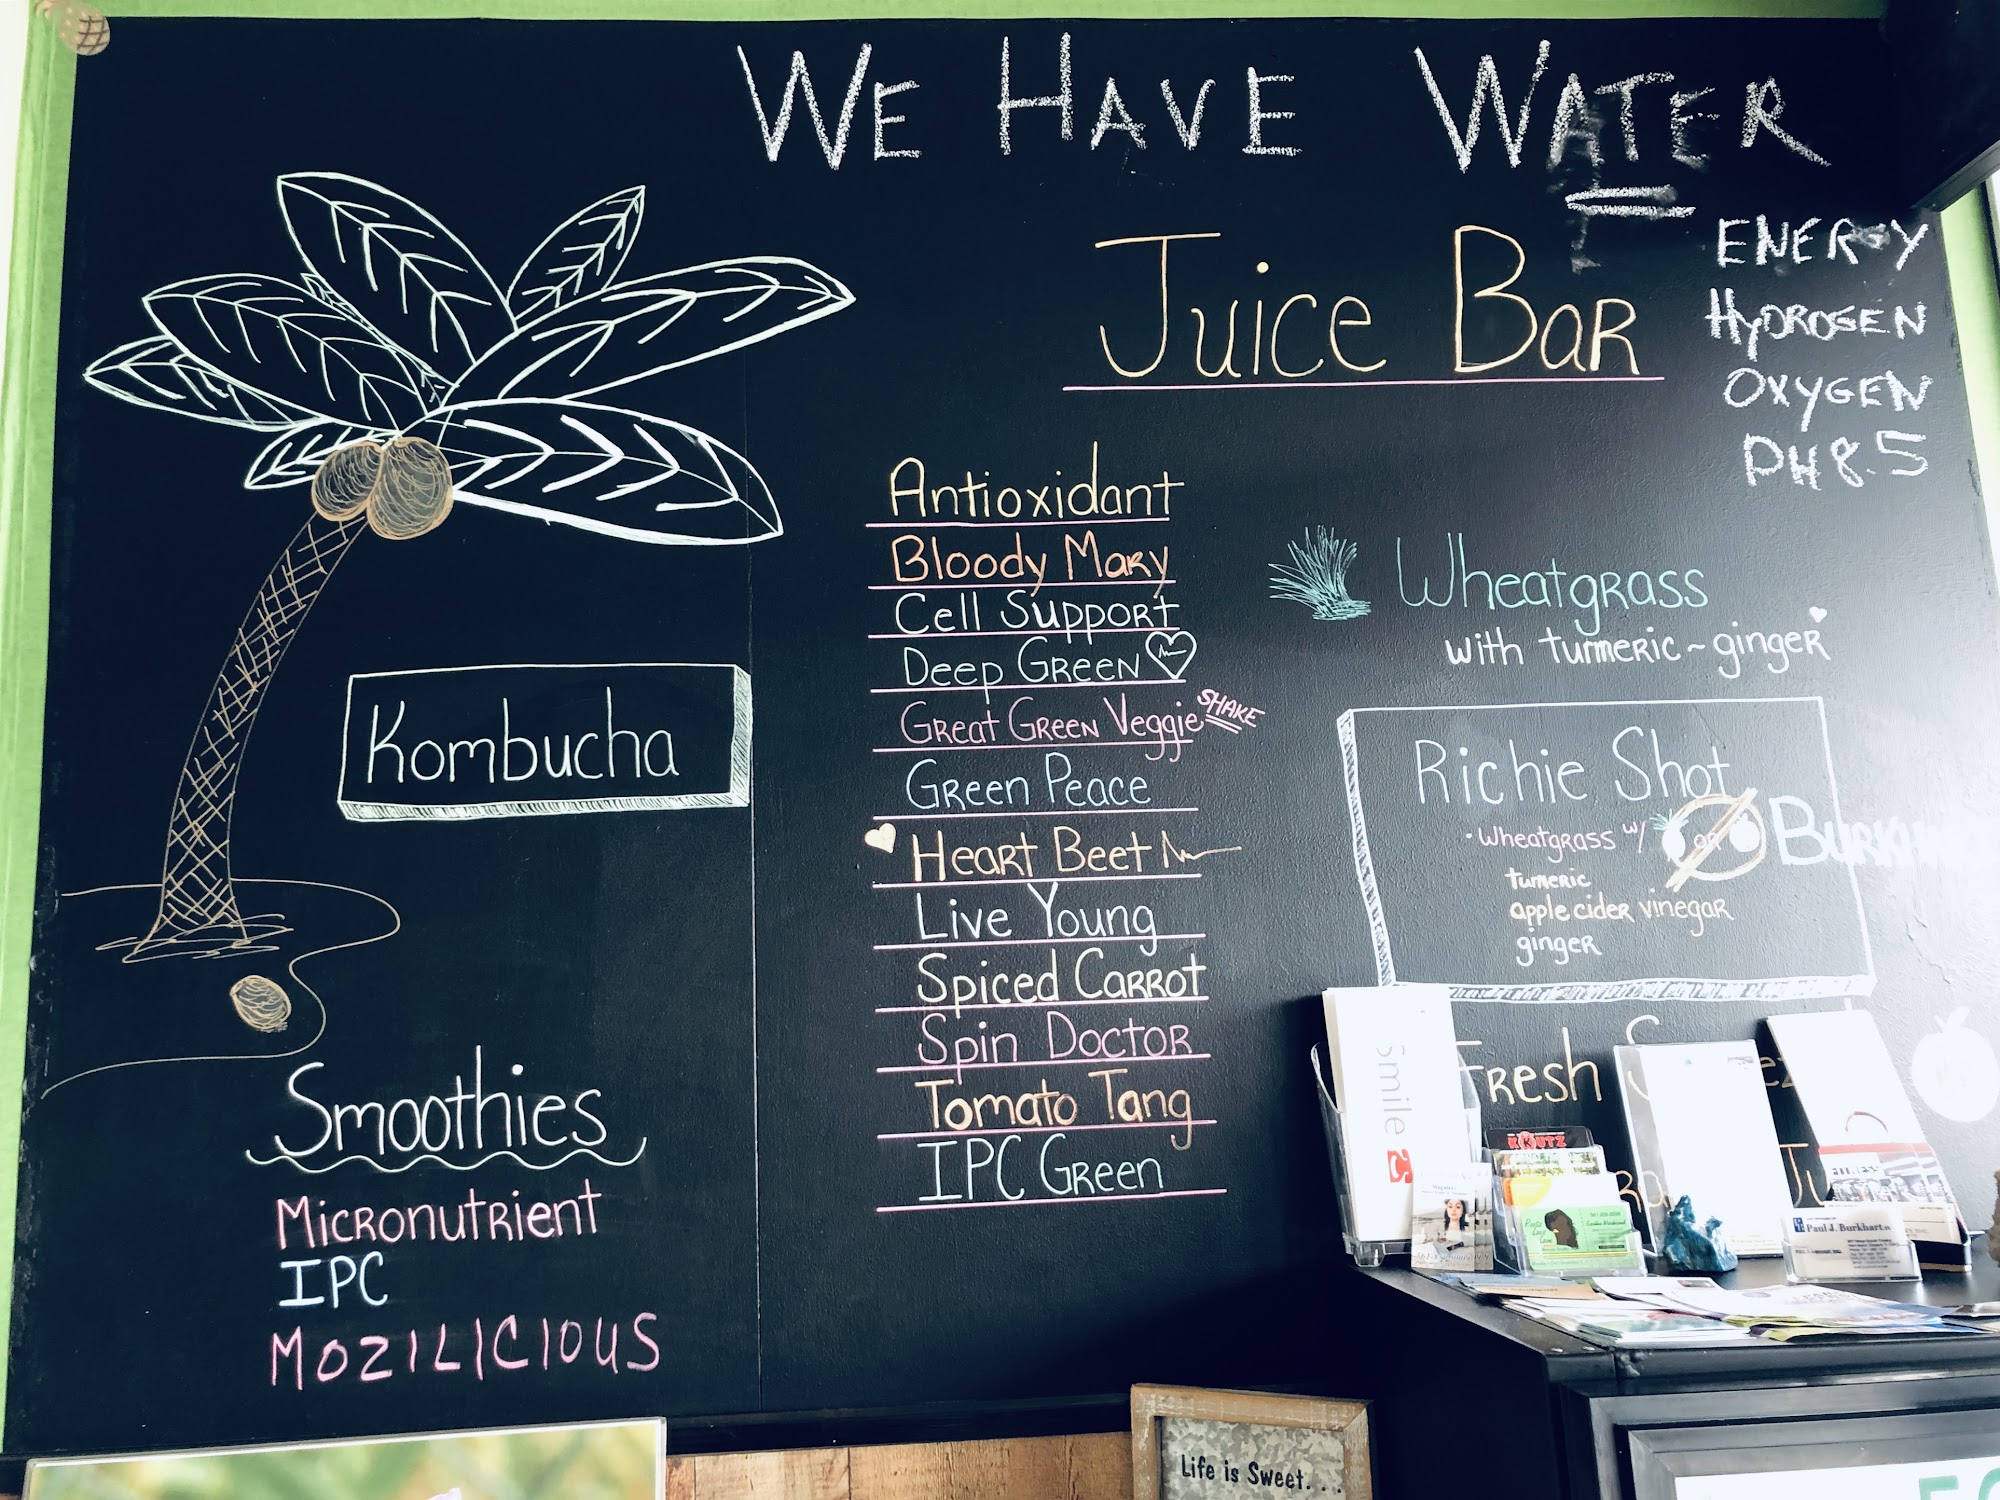 We Have Water
Energy
Hydrogen
Oxygen
PH 8.5
Juice Bar
Antioxidant
Bloody Mary
Cell Support
Deep Green
Great Green Veggie SHAKE
Green Peace
Heart Beet
Live Young
Spiced Carrot
Spin Doctor
Tomato Tang
IPC Green
Wheatgrass
with turmeric ~ ginger
Richie Shot
• Wheatgrass w/ or
turmeric
apple cider vinegar
ginger
Fresh
Kombucha
Smoothies
Micronutrient
IPC
MOZILICIOUS
Smile
Paul J. Burkhart
Life is Sweet. . .